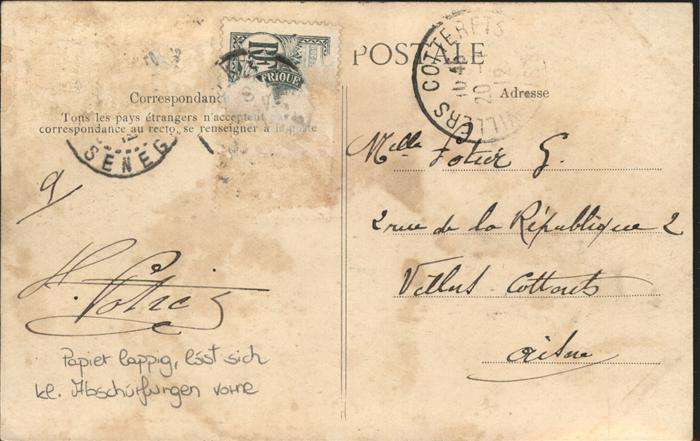 RF
AFRIQUE
POSTALE
VILLERS COTTERETS
20
Correspondance
Adresse
Tous les pays étrangers n'acceptent pas de
correspondance au recto, se renseigner à la poste
SENEG
Melle Fotié G.
2 rue de la République 2
Villers Cotterets
Aisne
Papier lappig, löst sich
kl. Abschürfungen vorne